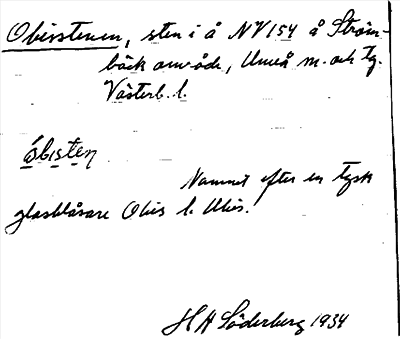 Obisstenen, sten i å NV 154 å Ström-
bäck område, Umeå m. och tg.
Västerb. l.
óbisten
Namnet efter en tysk
glasblåsare Obis l. Ubis.
H H Söderberg 1934